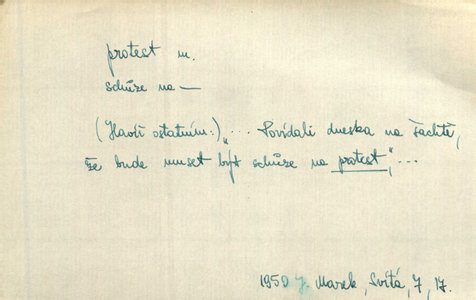 protest m.
schůze na —
(Havíř ostatním:) „... Povídali dneska na šachtě,
že bude muset být schůze na protest,“ ...
1950 J. Marek, Svítá, 7, 17.